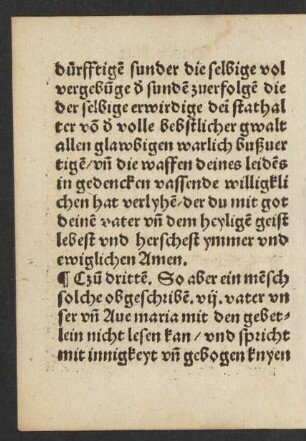 dürfftigē sunder die selbige vol
vergebūge d̄ sundē zuerfolgē die
der selbige erwirdige dei stathal
ter vō d̄ volle bebstlicher gwalt
allen glawbigen warlich bußuer
tigē/ vn̄ die waffen deines leidēs
in gedencken vassende willigkli
chen hat verlyhē/ der du mit got
deinē vater vn̄ dem heyligē geist
lebest vnd herschest ymmer vnd
ewiglichen Amen.
¶ Czū drittē. So aber ein mēsch
solche obgeschribē. vij. vater vn
ser vn̄ Aue maria mit den gebet⸗
lein nicht lesen kan/ vnd spricht
mit innigkeyt vn̄ gebogen knyen